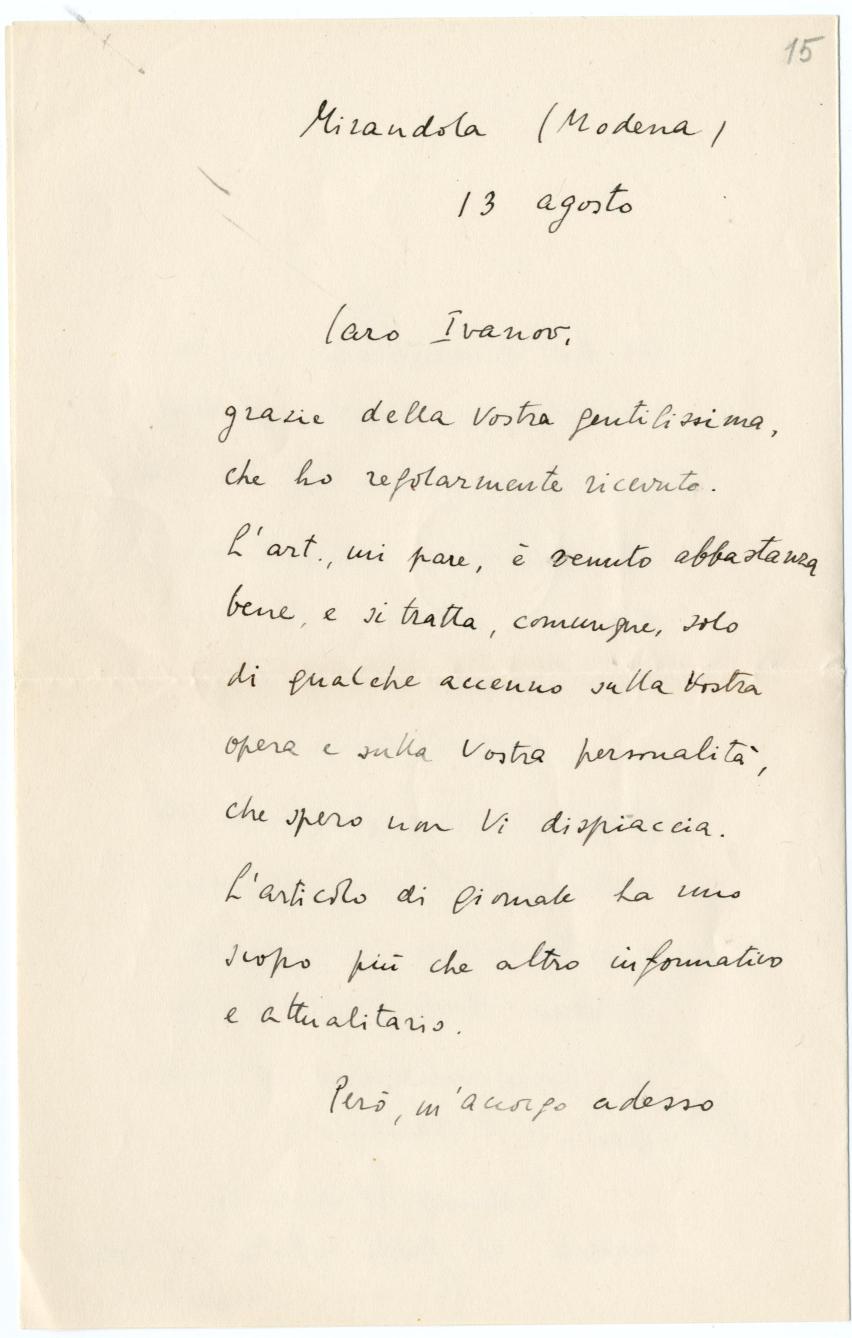 15
Mirandola (Modena)
13 agosto
Caro Ivanov,
grazie della Vostra gentilissima,
che ho regolarmente ricevuto.
L'art., mi pare, è venuto abbastanza
bene, e si tratta, comunque, solo
di qualche accenno sulla Vostra
opera e sulla Vostra personalità,
che spero non Vi dispiaccia.
L'articolo di giornale ha uno
scopo più che altro informativo
e attualitario.
Però, m'accorgo adesso